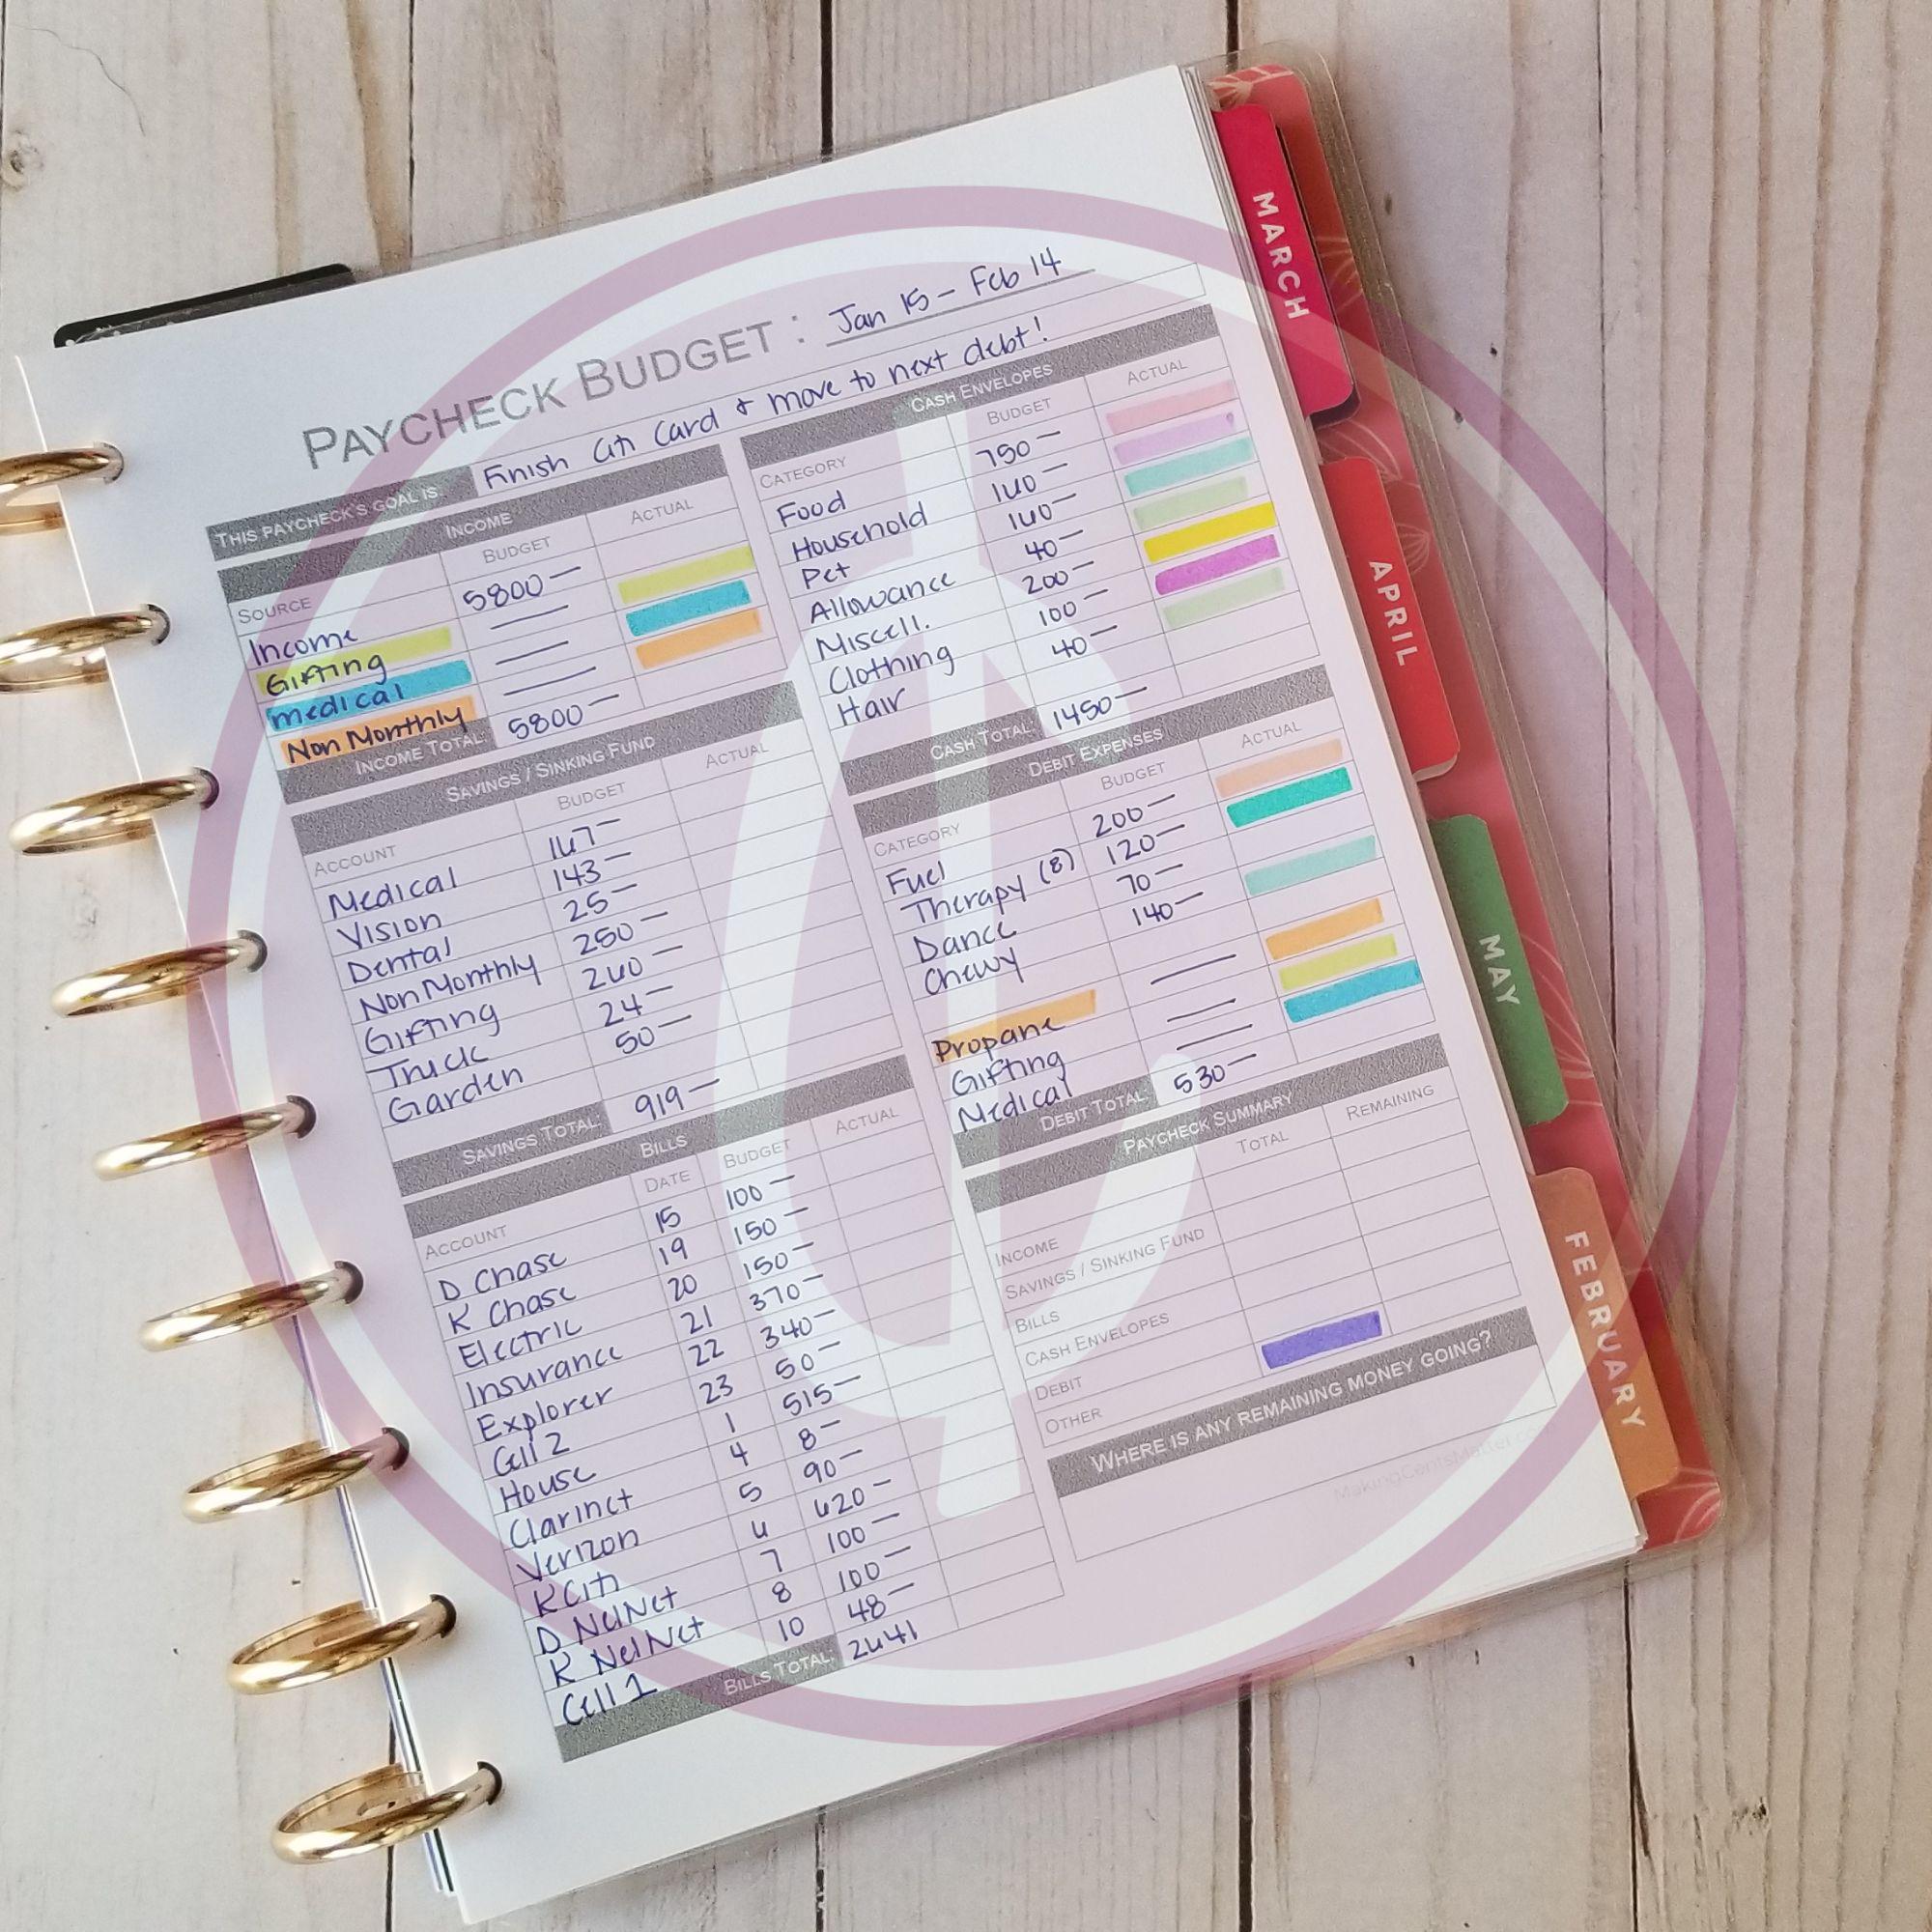 PAYCHECK BUDGET : Jan 15 - Feb 14
THIS PAYCHECK'S GOAL IS: Finish Citi Card & move to next debt!
INCOME
SOURCE BUDGET ACTUAL
Income 5800-
Gifting —
medical —
Non Monthly —
INCOME TOTAL: 5800-
SAVINGS / SINKING FUND
ACCOUNT BUDGET ACTUAL
Medical 167-
Vision 143-
Dental 25-
Non Monthly 250-
Gifting 260-
Truck 24-
Garden 50-
SAVINGS TOTAL: 919-
BILLS
ACCOUNT DATE BUDGET ACTUAL
D Chase 15 100-
K Chase 19 150-
Electric 20 150-
Insurance 21 370-
Explorer 22 340-
Cell 2 23 50-
House 1 515-
Clarinet 4 8-
Verizon 5 90-
K Citi 6 620-
D NelNet 7 100-
K NelNet 8 100-
Cell 1 10 48-
BILLS TOTAL: 2641
CASH ENVELOPES
CATEGORY BUDGET ACTUAL
Food 750-
Household 160-
Pet 160-
Allowance 40-
Miscell. 200-
Clothing 100-
Hair 40-
CASH TOTAL: 1450-
DEBIT EXPENSES
CATEGORY BUDGET ACTUAL
Fuel 200-
Therapy (8) 120-
Dance 70-
Chewy 140-
Propane —
Gifting —
Medical —
DEBIT TOTAL: 530-
PAYCHECK SUMMARY
TOTAL REMAINING
INCOME
SAVINGS / SINKING FUND
BILLS
CASH ENVELOPES
DEBIT
OTHER
WHERE IS ANY REMAINING MONEY GOING?
MARCH
APRIL
MAY
FEBRUARY